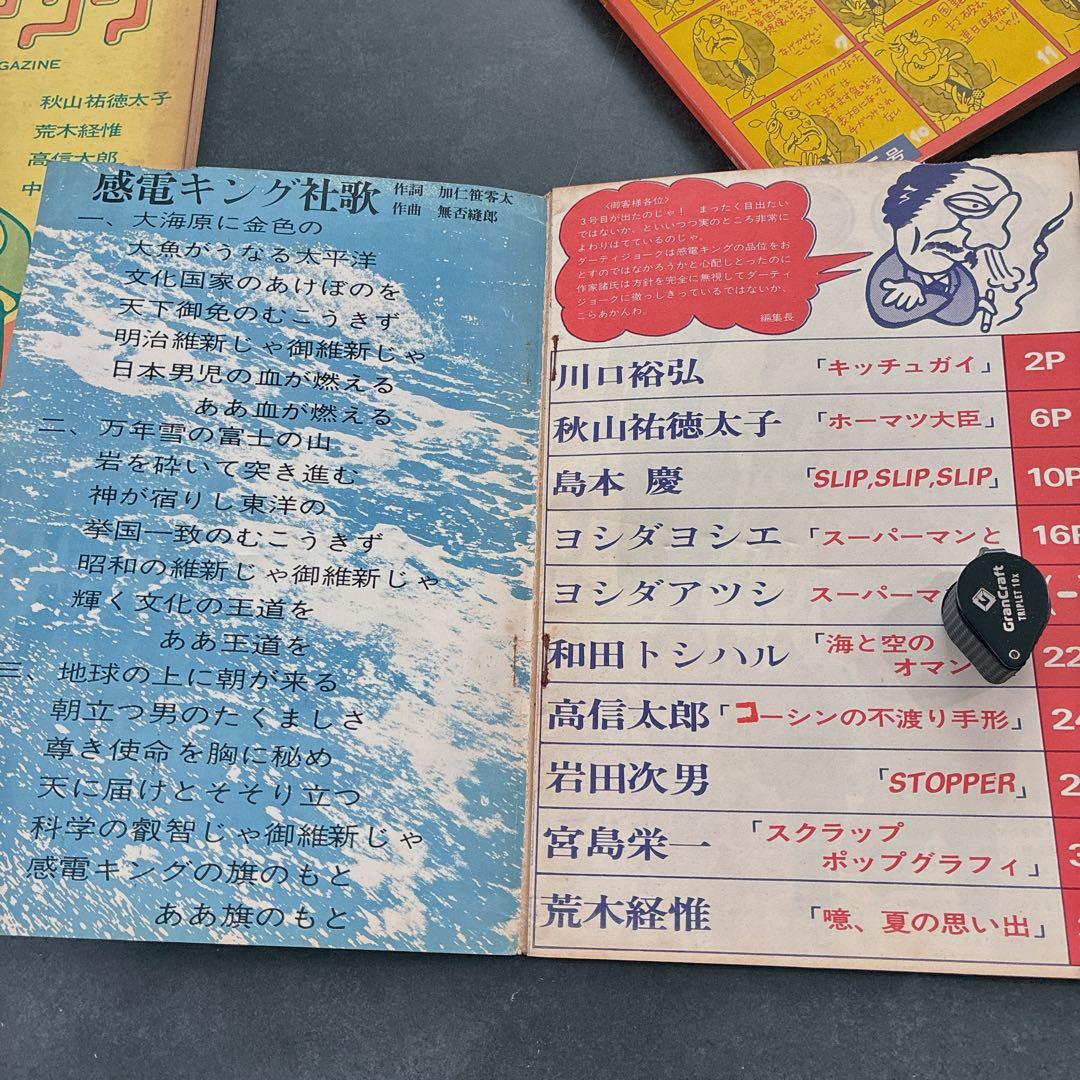 GAZINE
秋山祐徳太子
荒木経惟
高信太郎
中
10
11
感電キング社歌
作詞 加仁笹零太
作曲 無否縫郎
一、大海原に金色の
大魚がうなる太平洋
文化国家のあけぼのを
天下御免のむこうきず
明治維新じゃ御維新じゃ
日本男児の血が燃える
ああ血が燃える
二、万年雪の富士の山
岩を砕いて突き進む
神が宿りし東洋の
挙国一致のむこうきず
昭和の維新じゃ御維新じゃ
輝く文化の王道を
ああ王道を
三、地球の上に朝が来る
朝立つ男のたくましさ
尊き使命を胸に秘め
天に届けとそそり立つ
科学の叡智じゃ御維新じゃ
感電キングの旗のもと
ああ旗のもと
〈御客様各位〉
3号目が出たのじゃ! まったく目出たい
ではないか、といいつつ実のところ非常に
よわりはてているのじゃ。
ダーティジョークは感電キングの品位をお
とすのではなかろうかと心配しとったのに
作家諸氏は方針を完全に無視してダーティ
ジョークに徹っしきっているではないか、
こらあかんわ。
編集長
川口裕弘 「キッチュガイ」 2P
秋山祐徳太子 「ホーマツ大臣」 6P
島本 慶 「SLIP,SLIP,SLIP」 10P
ヨシダヨシエ 「スーパーマンと 16P
ヨシダアツシ スーパーマ
和田トシハル 「海と空の
オマン 22
高信太郎 「コーシンの不渡り手形」 24
岩田次男 「STOPPER」 2
宮島栄一 「スクラップ
ポップグラフィ」 3
荒木経惟 「噫、夏の思い出」
GranCraft
TRIPLET 10x